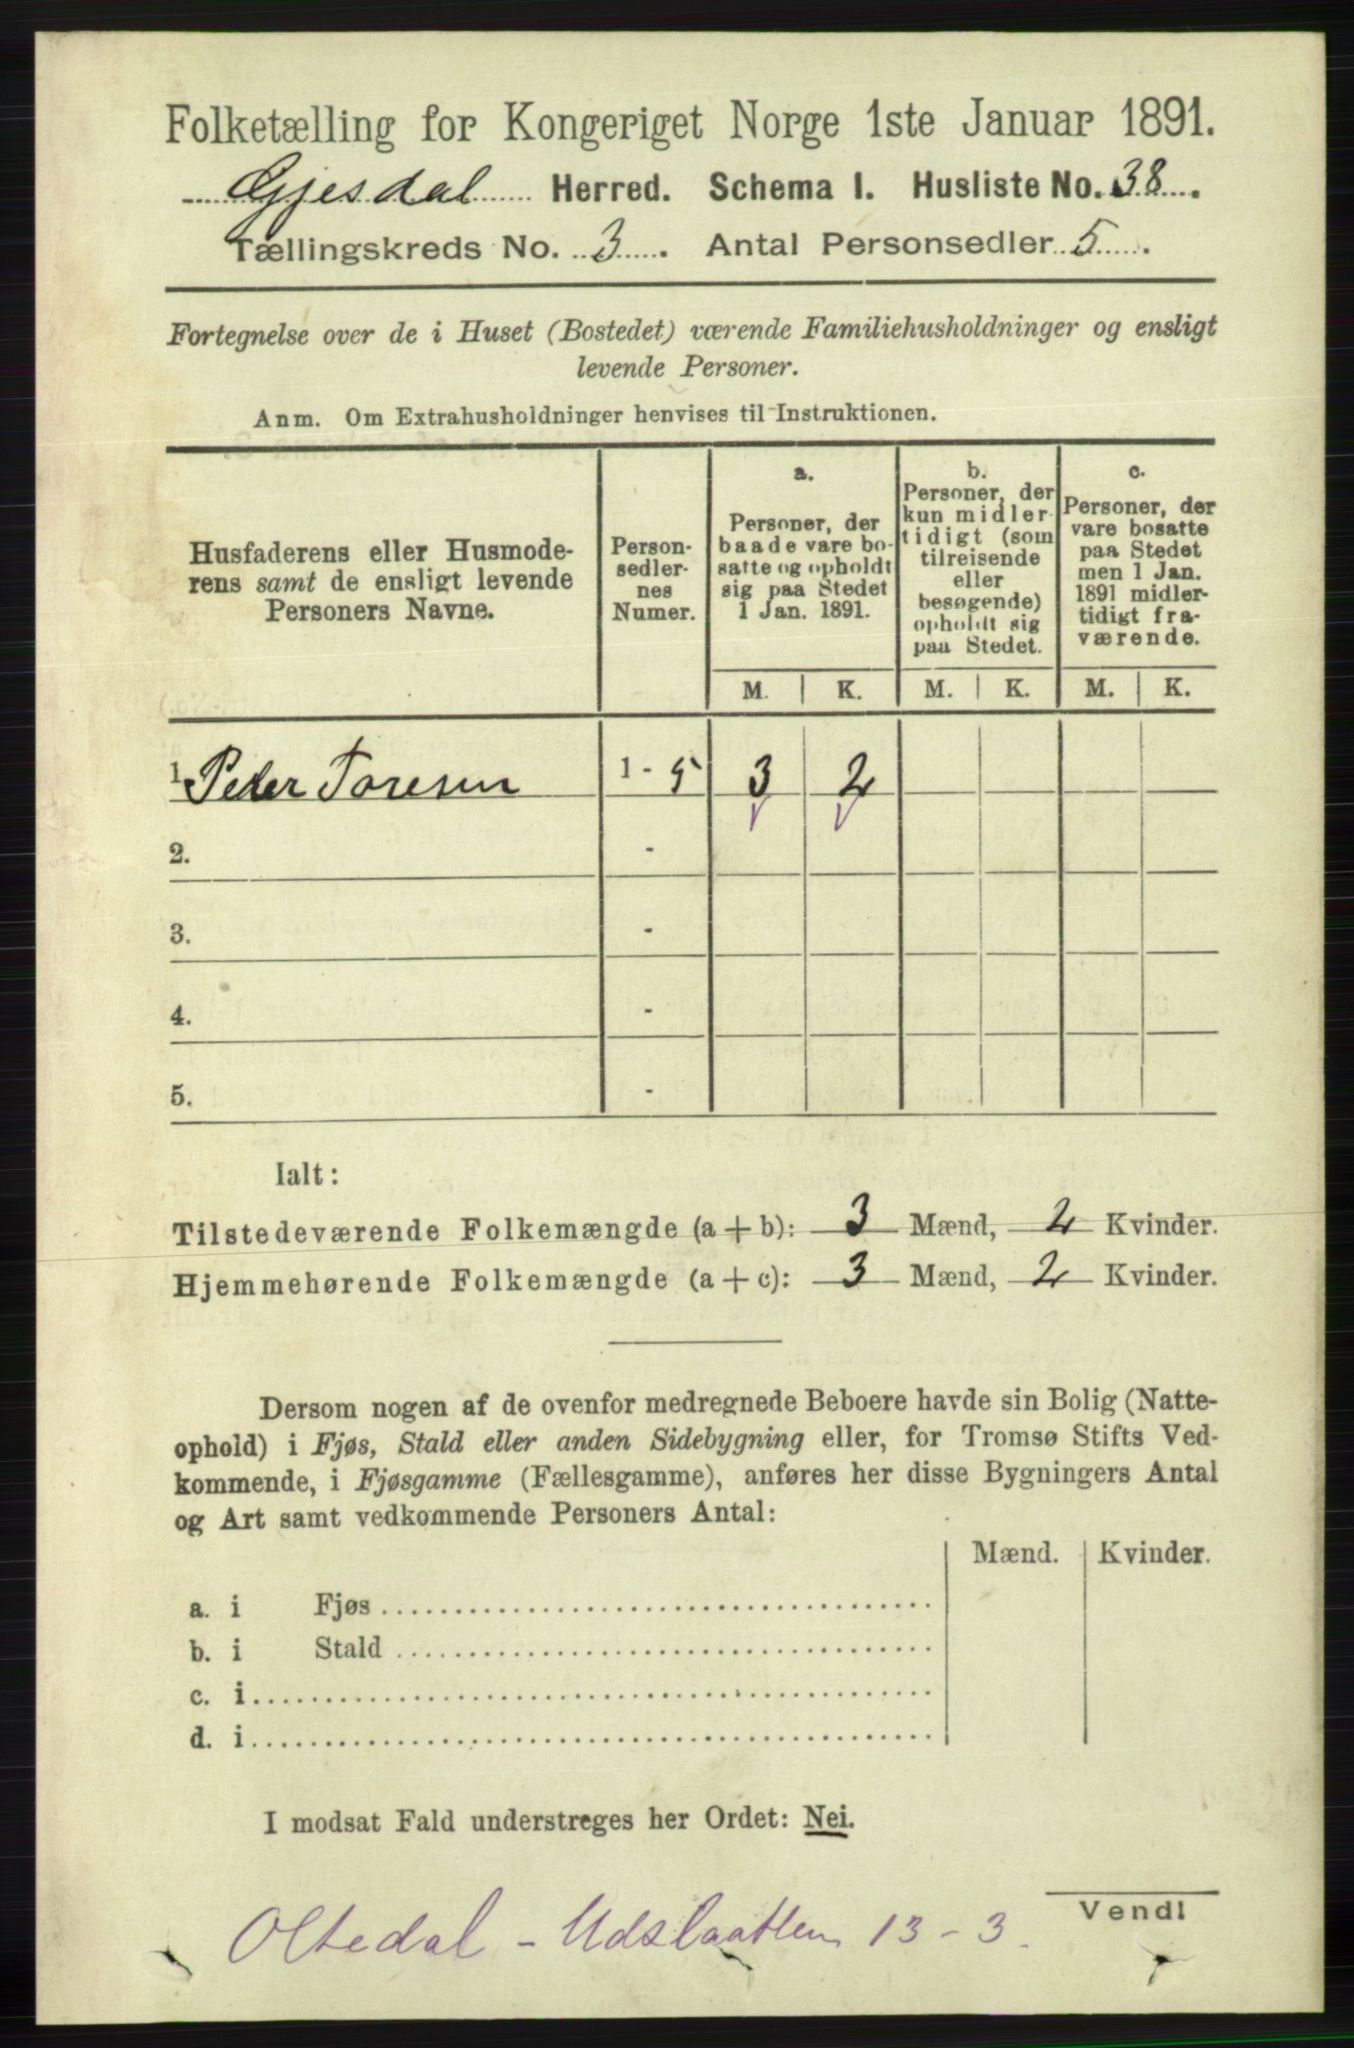 Folketælling for Kongeriget Norge 1ste Januar 1891.
Gjesdal Herred. Schema I. Husliste No. 38.
Tællingskreds No. 3. Antal Personsedler 5.
Fortegnelse over de i Huset (Bostedet) værende Familiehusholdninger og ensligt
levende Personer.
Anm. Om Extrahusholdninger henvises til Instruktionen.
Husfaderens eller Husmode-
rens samt de ensligt levende
Personers Navne.
Person-
sedler-
nes
Numer.
a.
Personer, der
baade vare bo-
satte og opholdt
sig paa Stedet
1 Jan. 1891.
b.
Personer, der
kun midler-
tidigt (som
tilreisende
eller
besøgende)
opholdt sig
paa Stedet.
c.
Personer, der
vare bosatte
paa Stedet
men 1 Jan.
1891 midler-
tidigt fra-
værende.
M. K. M. K. M. K.
1. Peder Toresen 1 - 5 3 2
2. -
3. -
4. -
5. -
Ialt:
Tilstedeværende Folkemængde (a + b): 3 Mænd, 2 Kvinder.
Hjemmehørende Folkemængde (a + c): 3 Mænd, 2 Kvinder.
Dersom nogen af de ovenfor medregnede Beboere havde sin Bolig (Natte-
ophold) i Fjøs, Stald eller anden Sidebygning eller, for Tromsø Stifts Ved-
kommende, i Fjøsgamme (Fællesgamme), anføres her disse Bygningers Antal
og Art samt vedkommende Personers Antal:
Mænd. Kvinder.
a. i Fjøs
b. i Stald
c. i
d. i
I modsat Fald understreges her Ordet: Nei.
Vend!
Oltedal - Udslaatten 13 - 3.